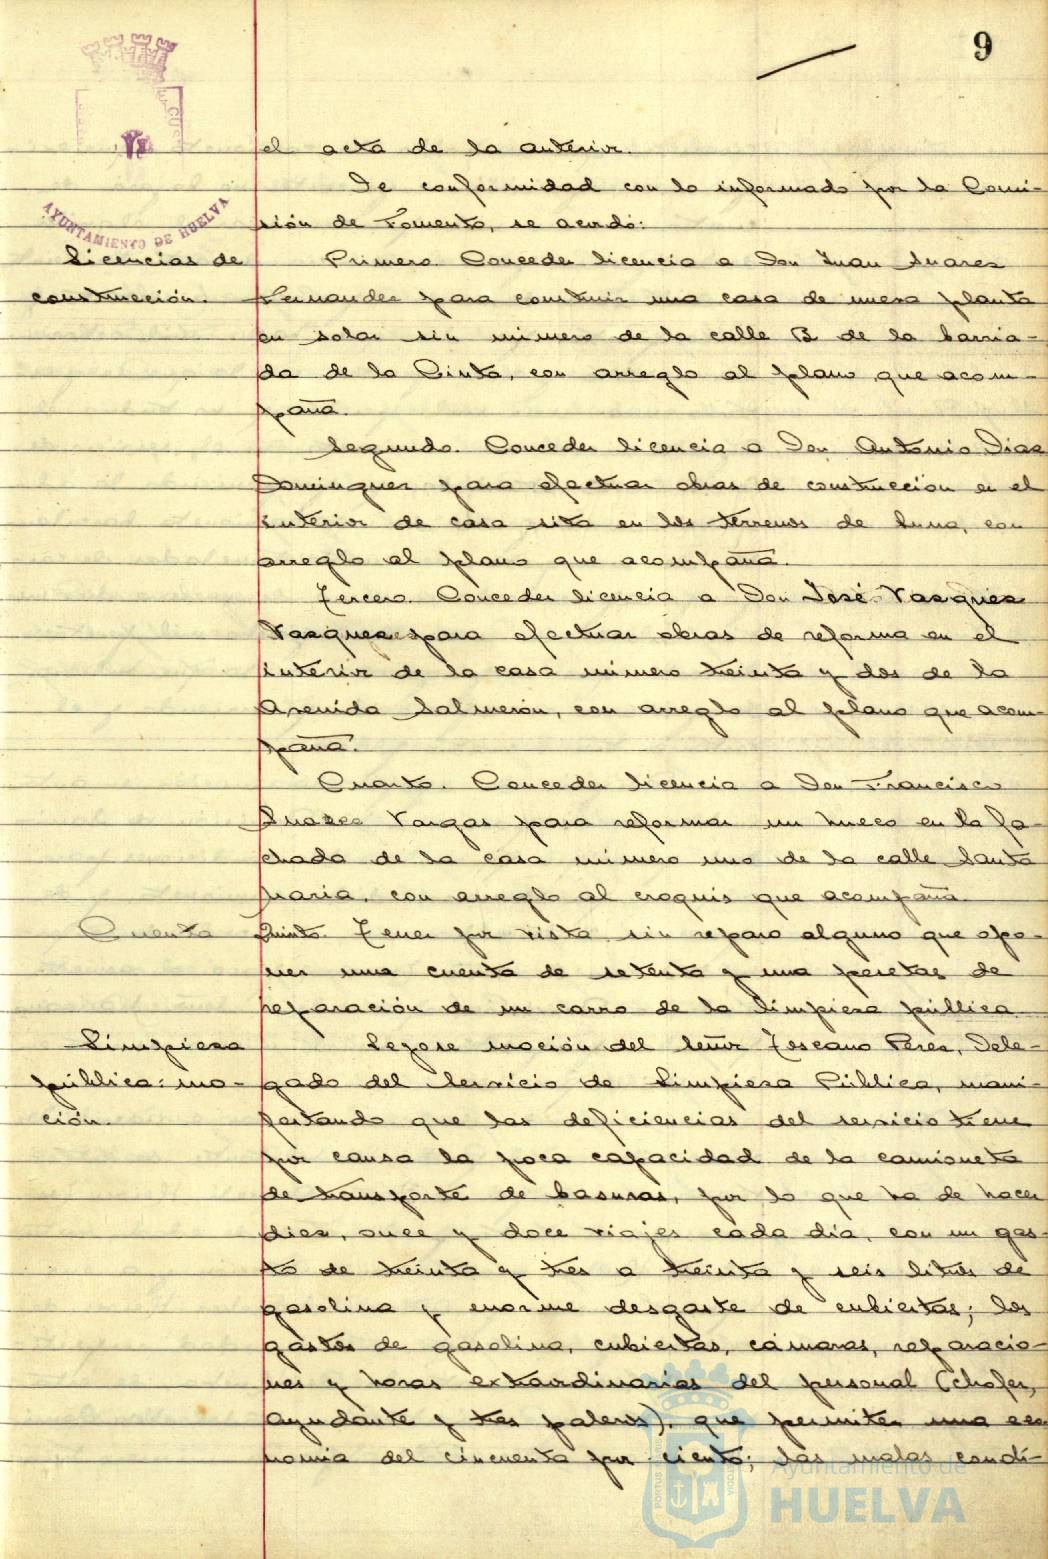 9
AYUNTAMIENTO DE HUELVA
el acta de la anterior.
De conformidad con lo informado por la Comi-
sión de Fomento, se acordó:
Licencias de
construcción.
Primero. Conceder licencia a Don Juan Suarez
Fernandez para construir una casa de nueva planta
en solar sin número de la calle B de la barria-
da de la Cinta, con arreglo al plano que acom-
paña.
Segundo. Conceder licencia a Don Antonio Diaz
Dominguez para efectuar obras de construcción en el
interior de casa sita en los terrenos de Luna, con
arreglo al plano que acompaña.
Tercero. Conceder licencia a Don José Vazquez
Vazquez para efectuar obras de reforma en el
interior de la casa número treinta y dos de la
Avenida Salmerón, con arreglo al plano que acom-
paña.
Cuarto. Conceder licencia a Don Francisco
Suarez Vargas para reformar un hueco en la fa-
chada de la casa número uno de la calle Santa
María, con arreglo al croquis que acompaña.
Cuenta
Quinto. Tener por vista sin reparo alguno que opo-
ner una cuenta de setenta y una pesetas de
reparación de un carro de la limpieza pública.
Limpieza
pública: mo-
ción.
Leyose moción del Señor Toscano Perez, Dele-
gado del Servicio de Limpieza Pública, mani-
festando que las deficiencias del servicio tiene
por causa la poca capacidad de la camioneta
de transporte de basuras, por lo que ha de hacer
diez, once y doce viajes cada día, con un gas-
to de treinta y tres a treinta y seis litros de
gasolina y enorme desgaste de cubiertas; los
gastos de gasolina, cubiertas, cámaras, reparacio-
nes y horas extraordinarias del personal (chofer,
ayudante y tres paleros), que permiten una eco-
nomia del cincuenta por ciento; las malas condi-
Ayuntamiento de
HUELVA